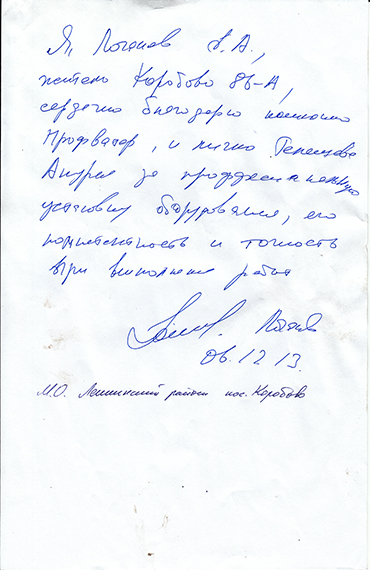 Я, Логачев А.А.,
житель Коробово 8б-А,
сердечно благодарю компанию
Профватер, и лично
Андрея за профессиональную
установку оборудования, его
компетентность и точность
при выполнении работ
06.12 13.
М.О. Ленинский район пос. Коробово